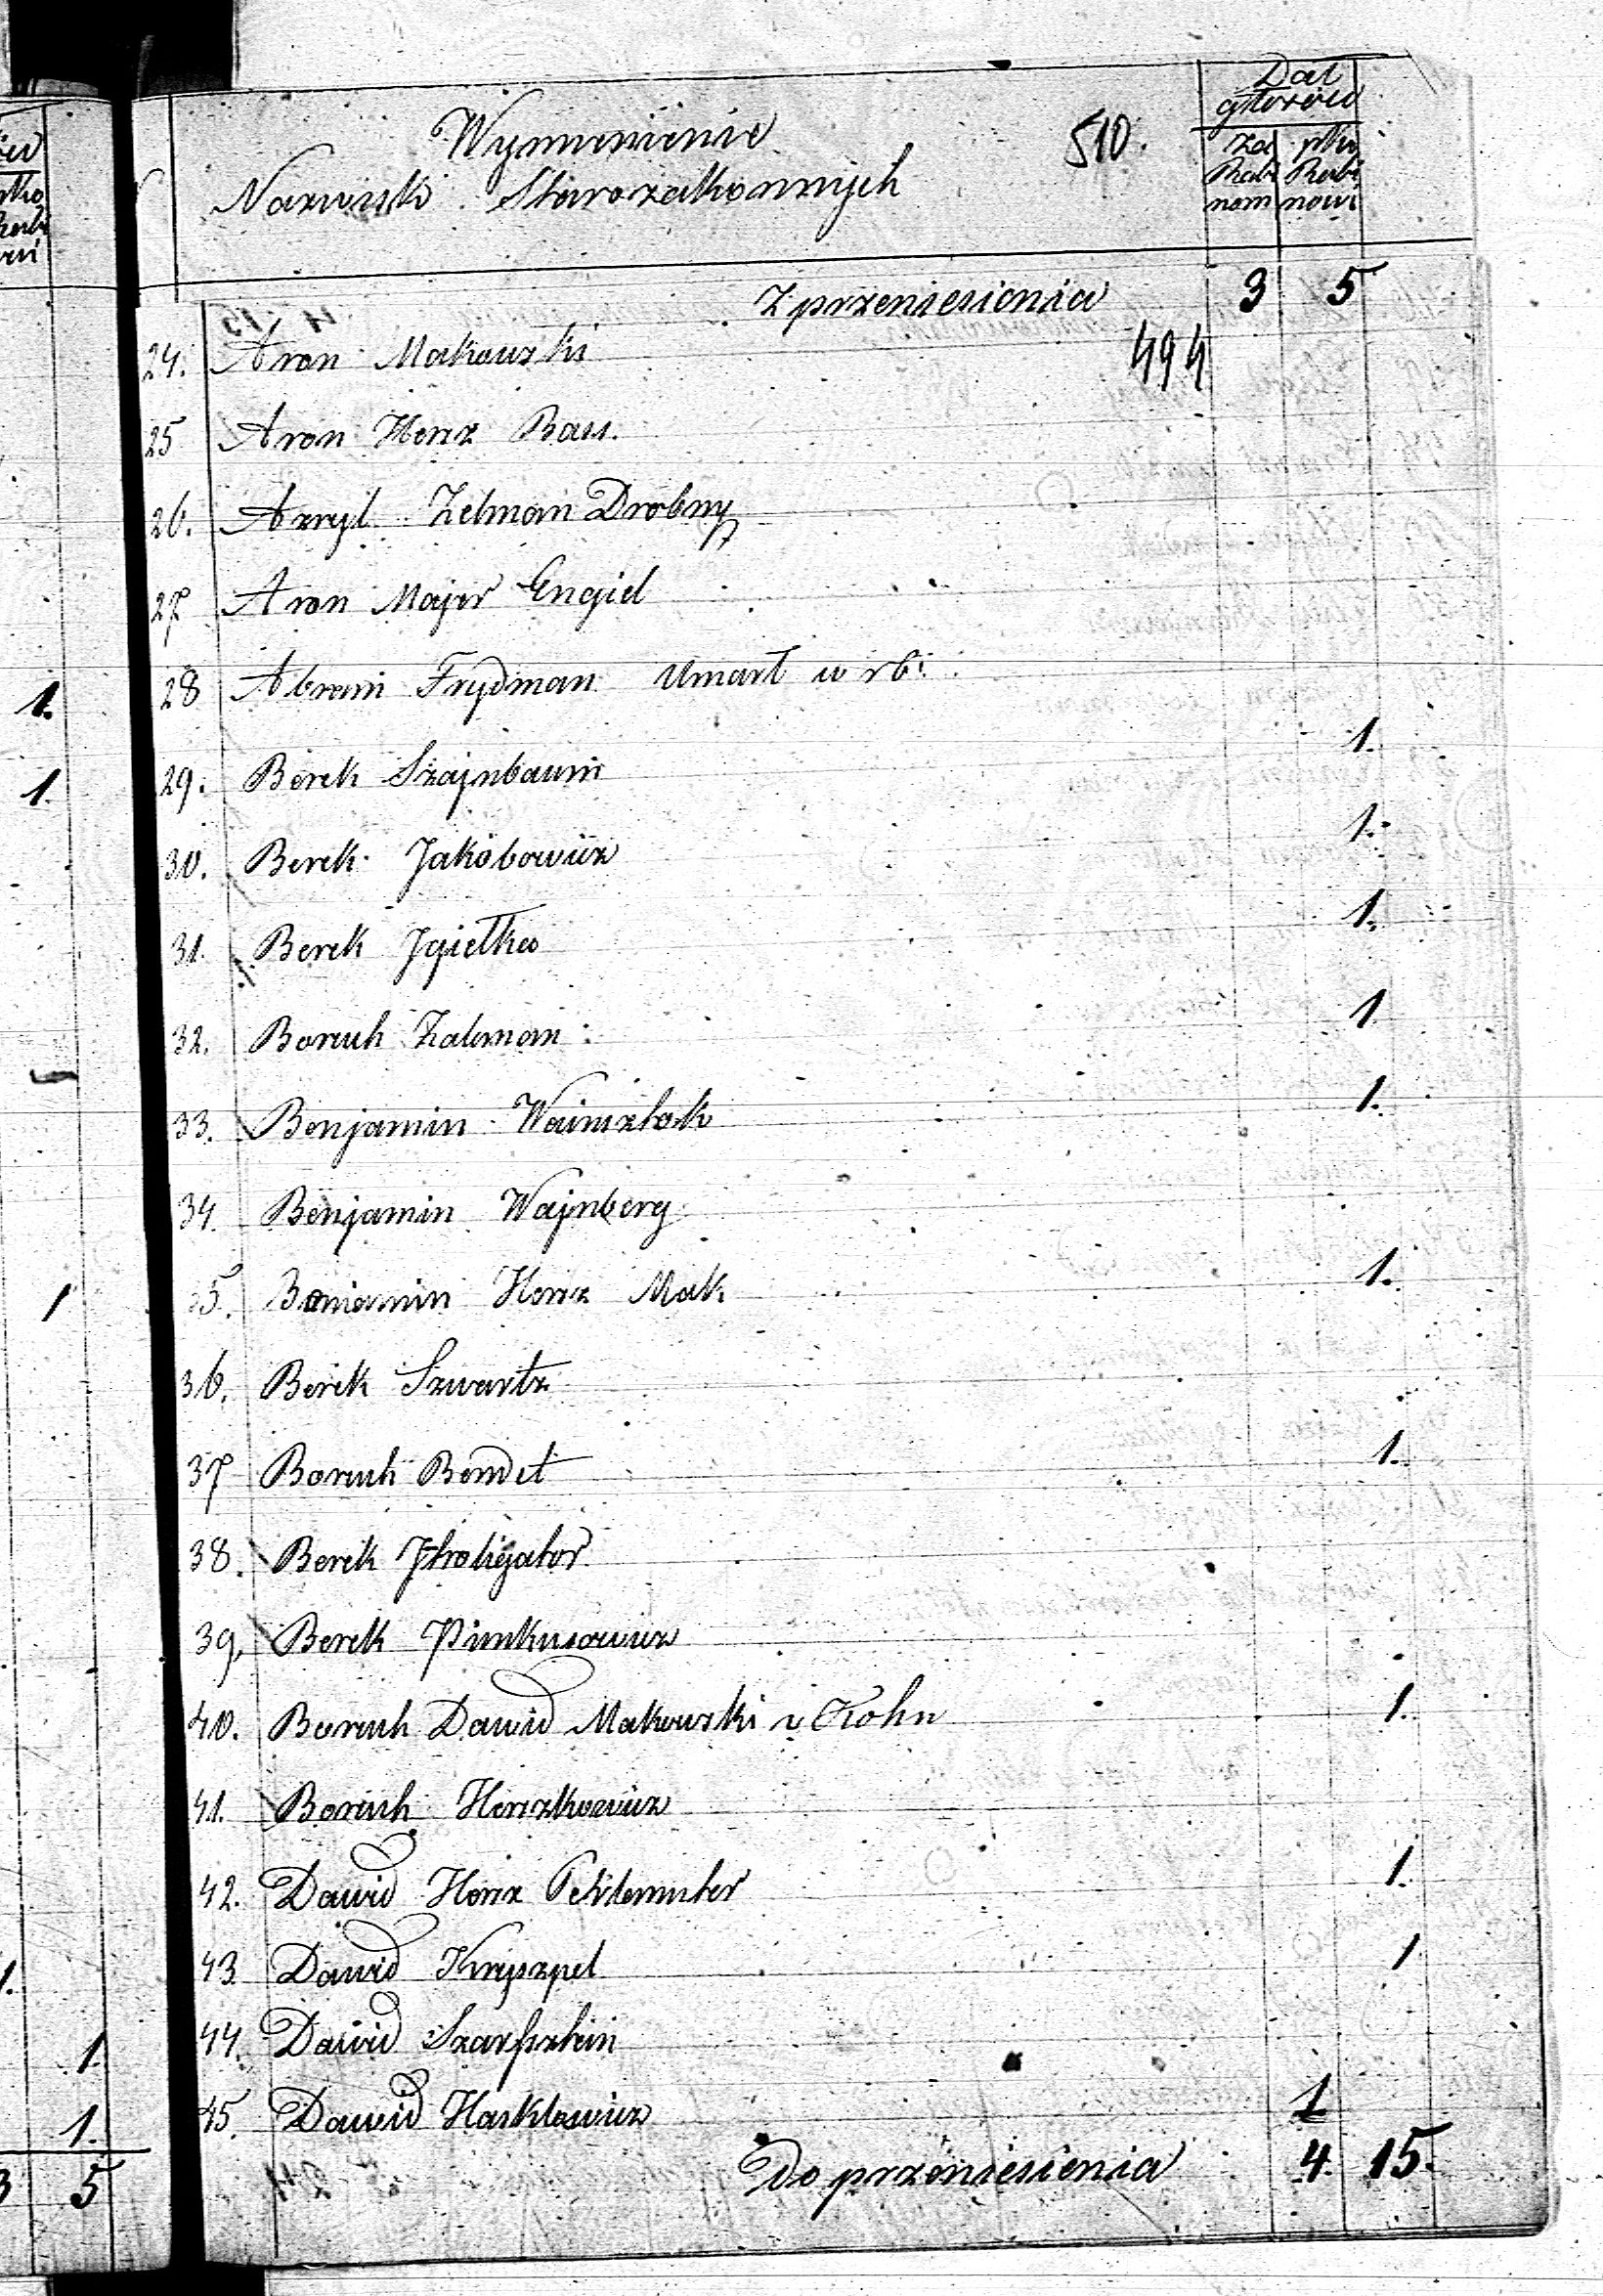 Wymienienie
Nazwisk Starozakonnych
510.
Dał
głosów
za
Rabi
nem
ptko
Rabi
nowi
Z przeniesienia 3 5
24. Aron Makowski 494
25 Aron Hersz Bass.
26. Azryl Zelman Drobny
27 Aron Majer Engiel
28 Abram Frydman Umarł w rb:
29. Berek Szajnbaum 1.
30. Berek Jakobowicz 1.
31. Berek Igiełka 1.
32. Boruch Zalcman 1
33. Benjamin Wainsztok 1.
34. Benjamin Wajnberg
35. Beniamin Hersz Mak 1.
36. Berek Szwartz
37 Boruch Bendet 1.
38. Berek Jtroligator
39. Berek Pinkusowicz
40. Boruch Dawid Makowski v Kohn 1.
41. Boruch Herszkowicz
42. Dawid Hersz 1.
43 Dawid Kryszpel 1
44. Dawid Szarfsztein
45. Dawid Hasklowicz 1
Do przeniesienia 4. 15.
1.
1.
1
1.
1.
1.
3 5